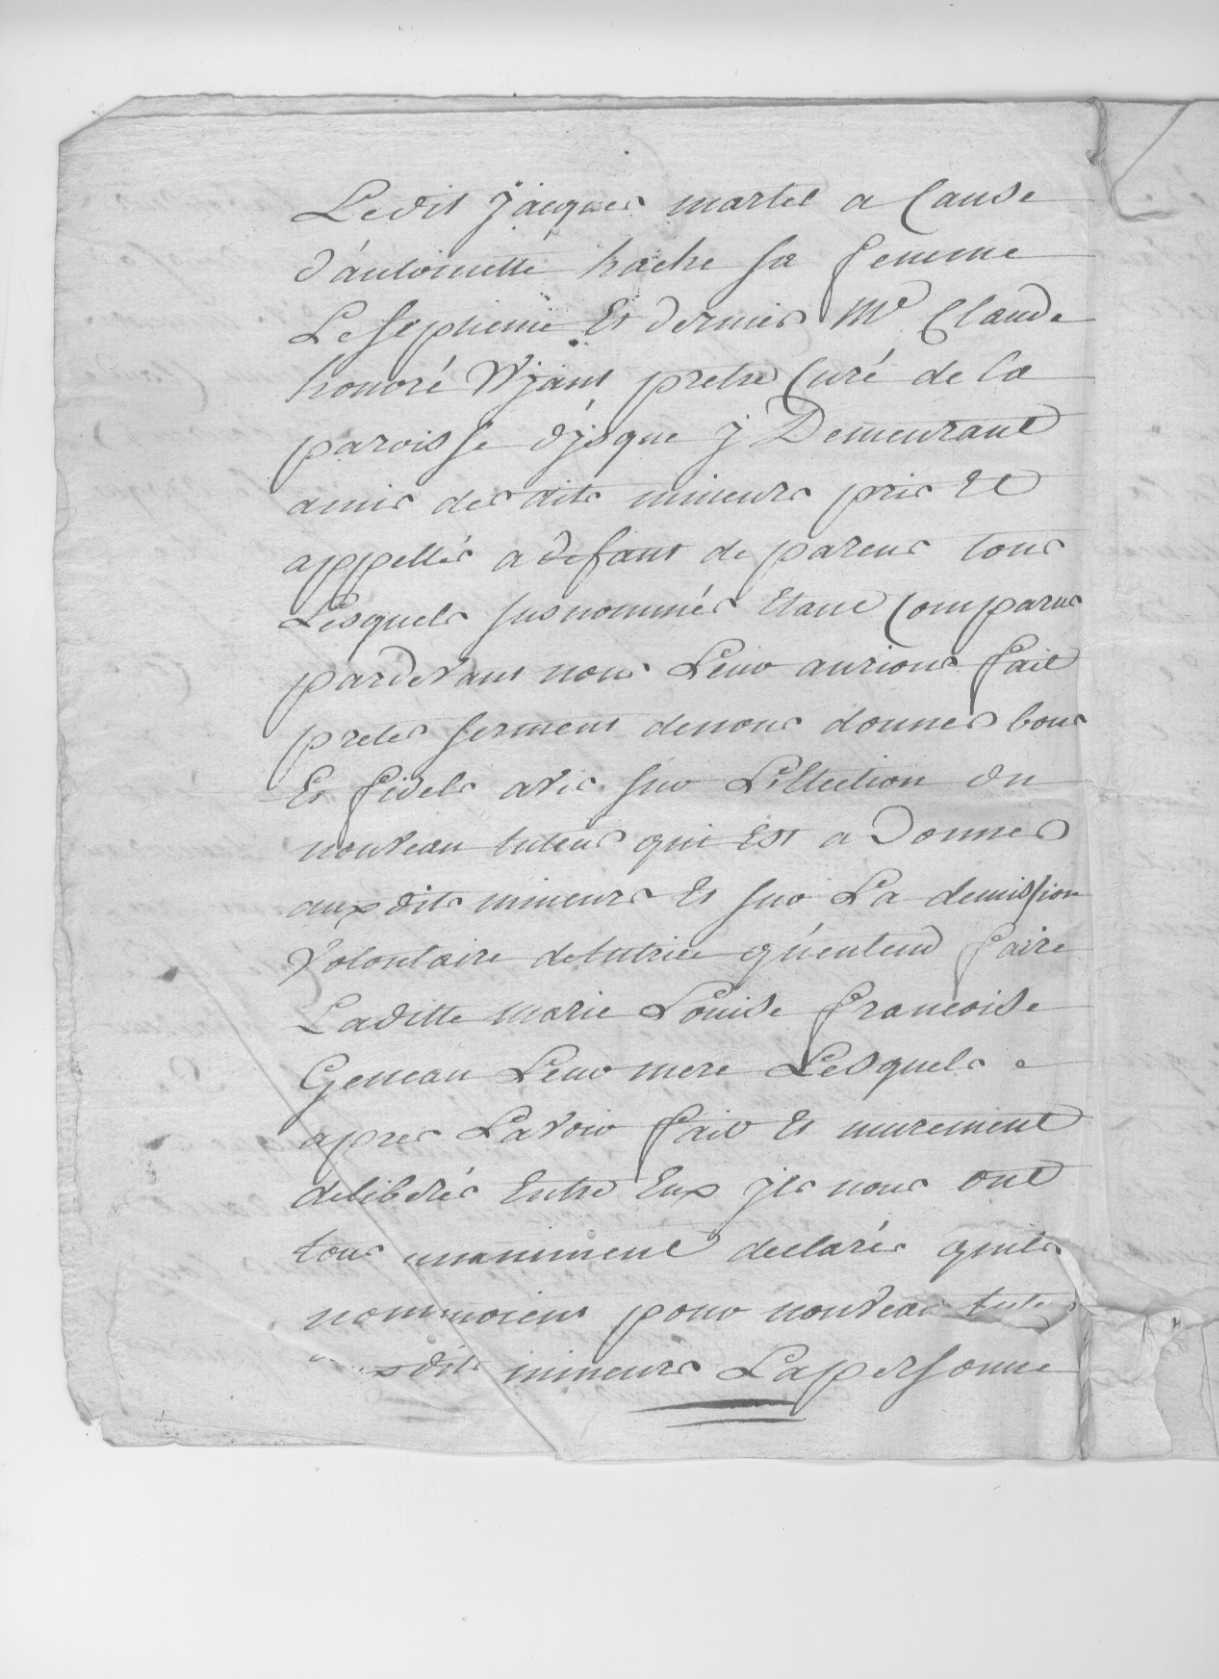 Ledit jacques martel a Cause
d'antoinette hache sa femme
Le septieme Et dernier Mr Claude
honoré Vyant pretre Curé de la
paroisse d'jsque j Demeurant
amis des dits mineurs pris Et
appellés a defaut de parens tous
Lesquels susnommés Etant Comparus
pardevant nous Leur aurions fait
preter serment de nous donner bons
Et fidels avis sur L'Election du
nouveau tuteur qui Est a Donner
aux dits mineurs Et sur La demission
Volontaire de tutrice qu'entend faire
Laditte marie Louise francoise
Geneau Leur mere Lesquels
apres Lavoir fait Et murement
deliberés Entre Eux jls nous ont
tous unaniment declarés quils
nommoient pour nouveau
dits mineurs La personne